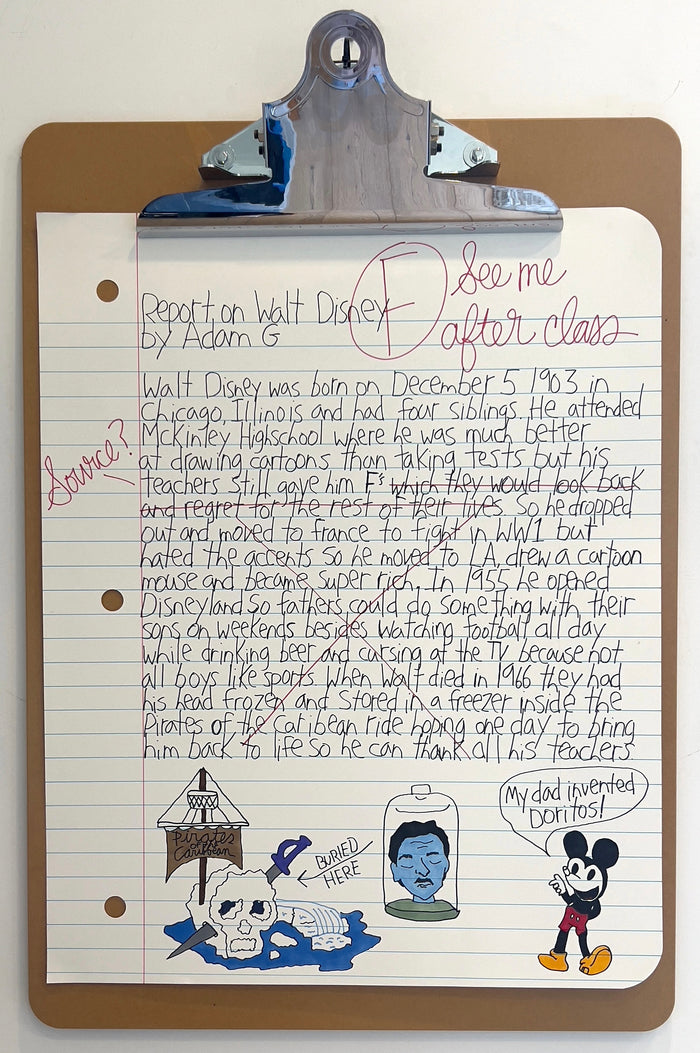 F
See me
after class
Report on Walt Disney
by Adam G
Walt Disney was born on December 5 1903 in
Chicago, Illinois and had four siblings. He attended
McKinley Highschool where he was much better
at drawing cartoons than taking tests but his
Source?
teachers still gave him F's which they would look back
and regret for the rest of their lives. So he dropped
out and moved to France to fight in WW1 but
hated the accents So he moved to LA, drew a cartoon
mouse and became super rich. In 1955 he opened
Disneyland So fathers could do something with their
sons on weekends besides watching football all day
while drinking beer and cursing at the TV because not
all boys like sports. When Walt died in 1966 they had
his head frozen and Stored in a freezer inside the
Pirates of the Caribean ride hoping one day to bring
him back to life so he can thank all his teachers.
Pirates
of the
Caribbean
BURIED
HERE
My dad invented
Doritos!